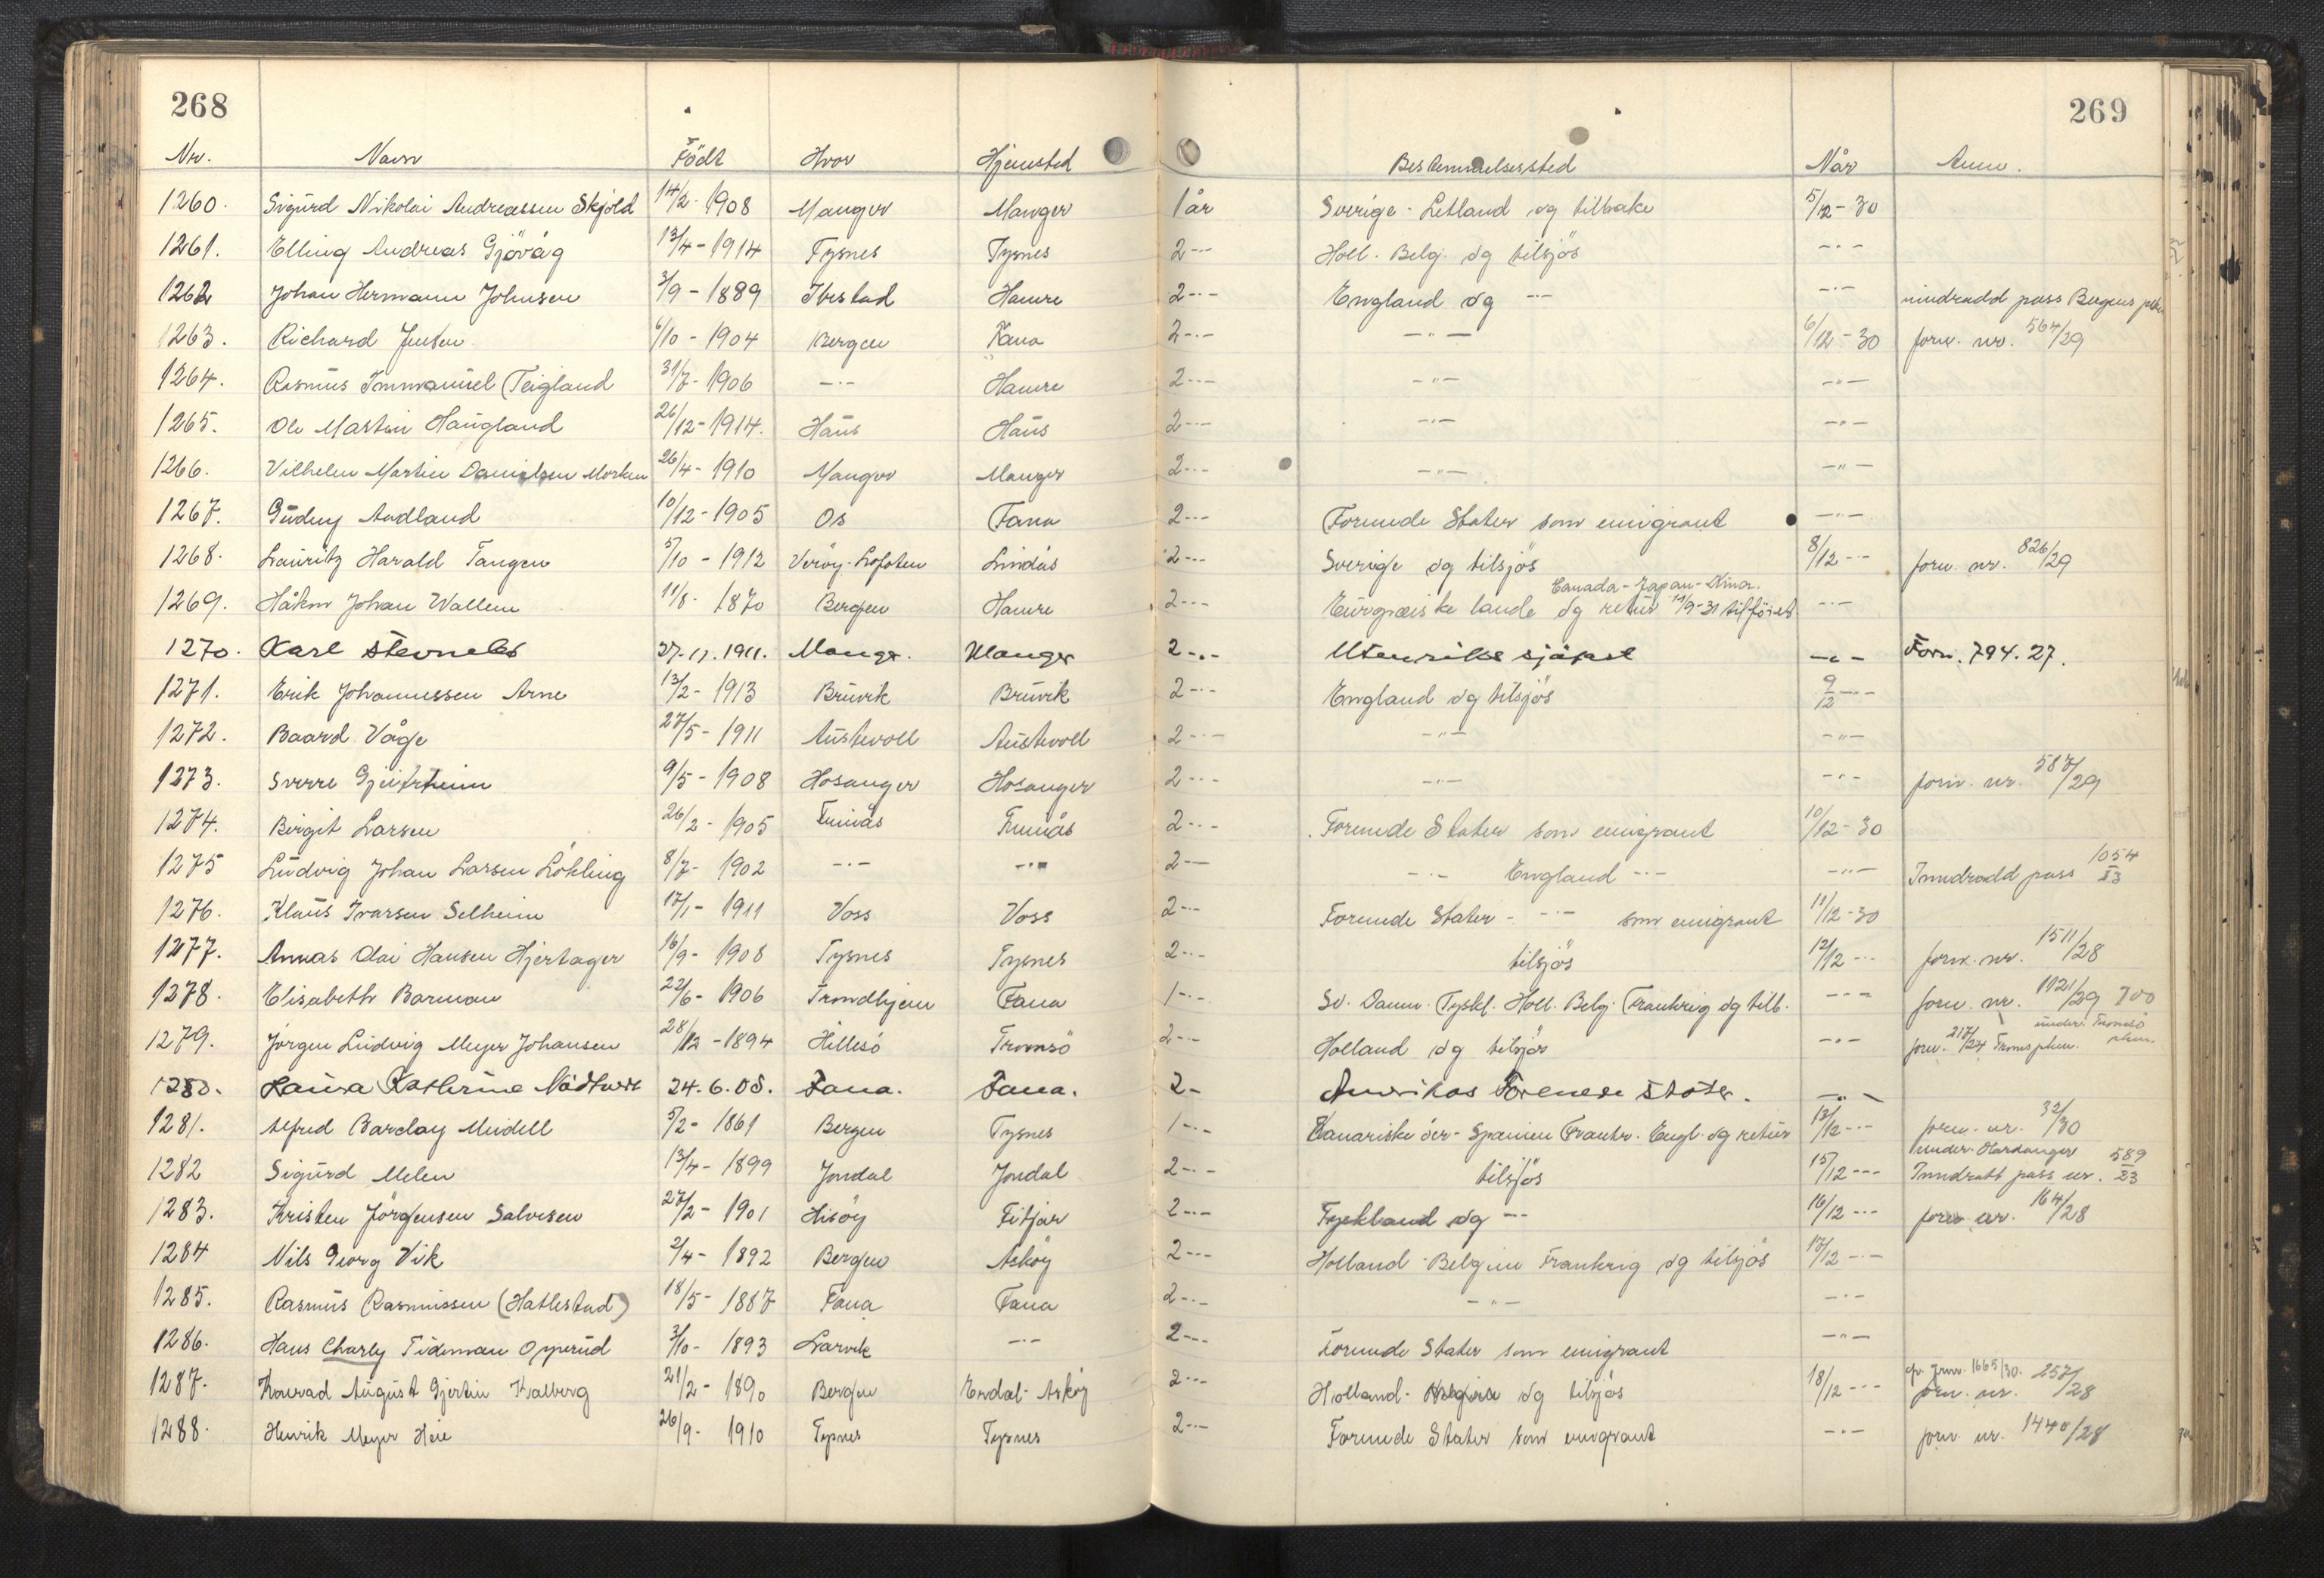 268
269
Nr. Navn Födt Hvor Hjemsted Bestemmelsessted Når Anm.
1260. Sigurd Nikolai Andreassen Skjold 14/2-1908 Manger Manger 1 år Sverige - Letland og tilbake 5/12-30
1261. Elling Andreas Gjövåg 13/4-1914 Tysnes Tysnes 2-"- Holl. Belg. og tilsjös -"-
1262 Johan Hermann Johnsen 3/9-1889 Ibestad Hamre 2-"- England og -"- -"- inndradd pass Bergens
1263. Richard Jensen 6/10-1904 Bergen Fana 2-"- -"- 6/12-30 forn. nr. 564/29
1264. Rasmus Immanuel Teigland 31/7-1906 -"- Hamre 2-"- -"- -"-
1265. Ole Martin Haugland 26/12-1914. Haus Haus 2-"- -"- -"-
1266. Vilhelm Martin Danielsen Morken 26/4-1910 Manger Manger 2-"- -"- -"-
1267. Gudny Aadland 10/12-1905 Os Fana 2-"- Forenede Stater som emigrant -"-
1268. Lauritz Harald Tangen 5/10-1912 Veröy-Lofoten Lindås 2-"- Sverige og tilsjös 8/12-"- forn. nr. 826/29
Canada-Japan-Kina.
1269. Håkon Johan Wallem 11/8-1870 Bergen Hamre 2-"- Europæiske lande og retur 14/9-31 tilföiet -"-
1270. Karl Stevnebö 27-11.1911. Manger. Manger 2-"- Utenriks sjöfart -"- Forn. 794.27.
1271. Erik Johannessen Arne 13/2-1913 Bruvik Bruvik 2-"- England og tilsjös 9/12-"-
1272. Baard Våge 27/5-1911 Austevoll Austevoll 2-"- -"- -"-
1273. Sverre 9/5-1908 Hosanger Hosanger 2-"- -"- -"- forn. nr. 587/29
1274. Birgit Larsen 26/2-1905 Finnås Finnås 2-"- Forenede Stater som emigrant 10/12-30
1275 Ludvig Johan Larsen Lökling 8/7-1902 -"- -"- 2-"- -"- England -"- -"- Inndradd pass 1054/23
1276. Klaus Ivarsen Selheim 17/1-1911 Voss Voss 2-"- Forenede Stater - -"- som emigrant 11/12-30
1277. Annas Olai Hansen Hjertager 16/9-1908 Tysnes Tysnes 2-"- tilsjös 12/12-"- forn. nr. 1511/28
1278. Elisabeth Barman 22/6-1906 Trondhjem Fana 1-"- Sv. Danm. Tyskl. Holl. Belg. Frankrig og tilb. -"- forn. nr. 1121/29 700
1279. Jörgen Ludvig Meyer Johansen 28/12-1894 Hillesö Tromsö 2-"- Holland og tilsjös -"- forn. 217/24 Troms phm. under Tromsö phm.
1280. Laura Kathrine Nödtvedt 24.6.08. Fana. Fana. 2- Amerikas Forenede Stater. -"-
1281. Alfred Barclay Meidell 5/2-1861 Bergen Tysnes 1-"- Kanariske öer-Spanien Frankr. Engl. og retur 13/12-"- forn. nr. 32/30
under Hardanger
1282 Sigurd Melen 13/4-1899 Jondal Jondal 2-"- tilsjös 15/12-"- Inndratt pass nr. 589/23
1283. Kristen Jörgensen Salvesen 27/2-1901 Hisöy Fitjar 2-"- Tyskland og -"- 16/12-"- forn nr. 164/28
1284 Nils Georg Vik 2/4-1892 Bergen Asköy 2-"- Holland-Belgien Frankrig og tilsjös 17/12-"-
1285. Rasmus Rasmussen (Hatlestad) 18/5-1887 Fana Fana 2-"- -"- -"-
1286. Hans Charly Tideman Opperud 3/10-1893 Larvik -"- 2-"- Forenede Stater som emigrant -"-
1287. Konrad August Gjertin Kalberg 21/2-1890 Bergen Erdal-Asköy 2-"- Holland-Belgien og tilsjös 18/12-"- forn. nr. 257/28
1665/30.
1288. Henrik Meyer Heie 26/9-1910 Tysnes Tysnes 2-"- Forenede Stater som emigrant -"- forn. nr. 1440/28